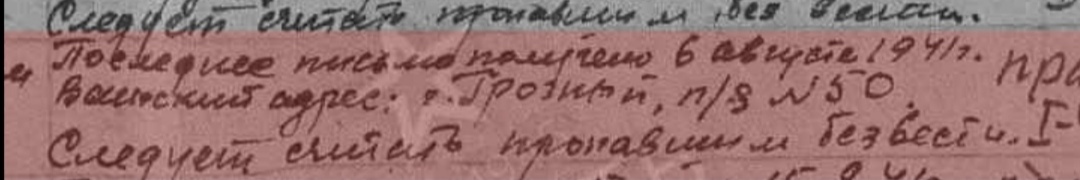 Следует считать пропавшим без вести.
Последнее письмо получено в августе 1941г.
Воинский адрес: г. Грозный, п/я №50.
Следует считать пропавшим без вести. I-